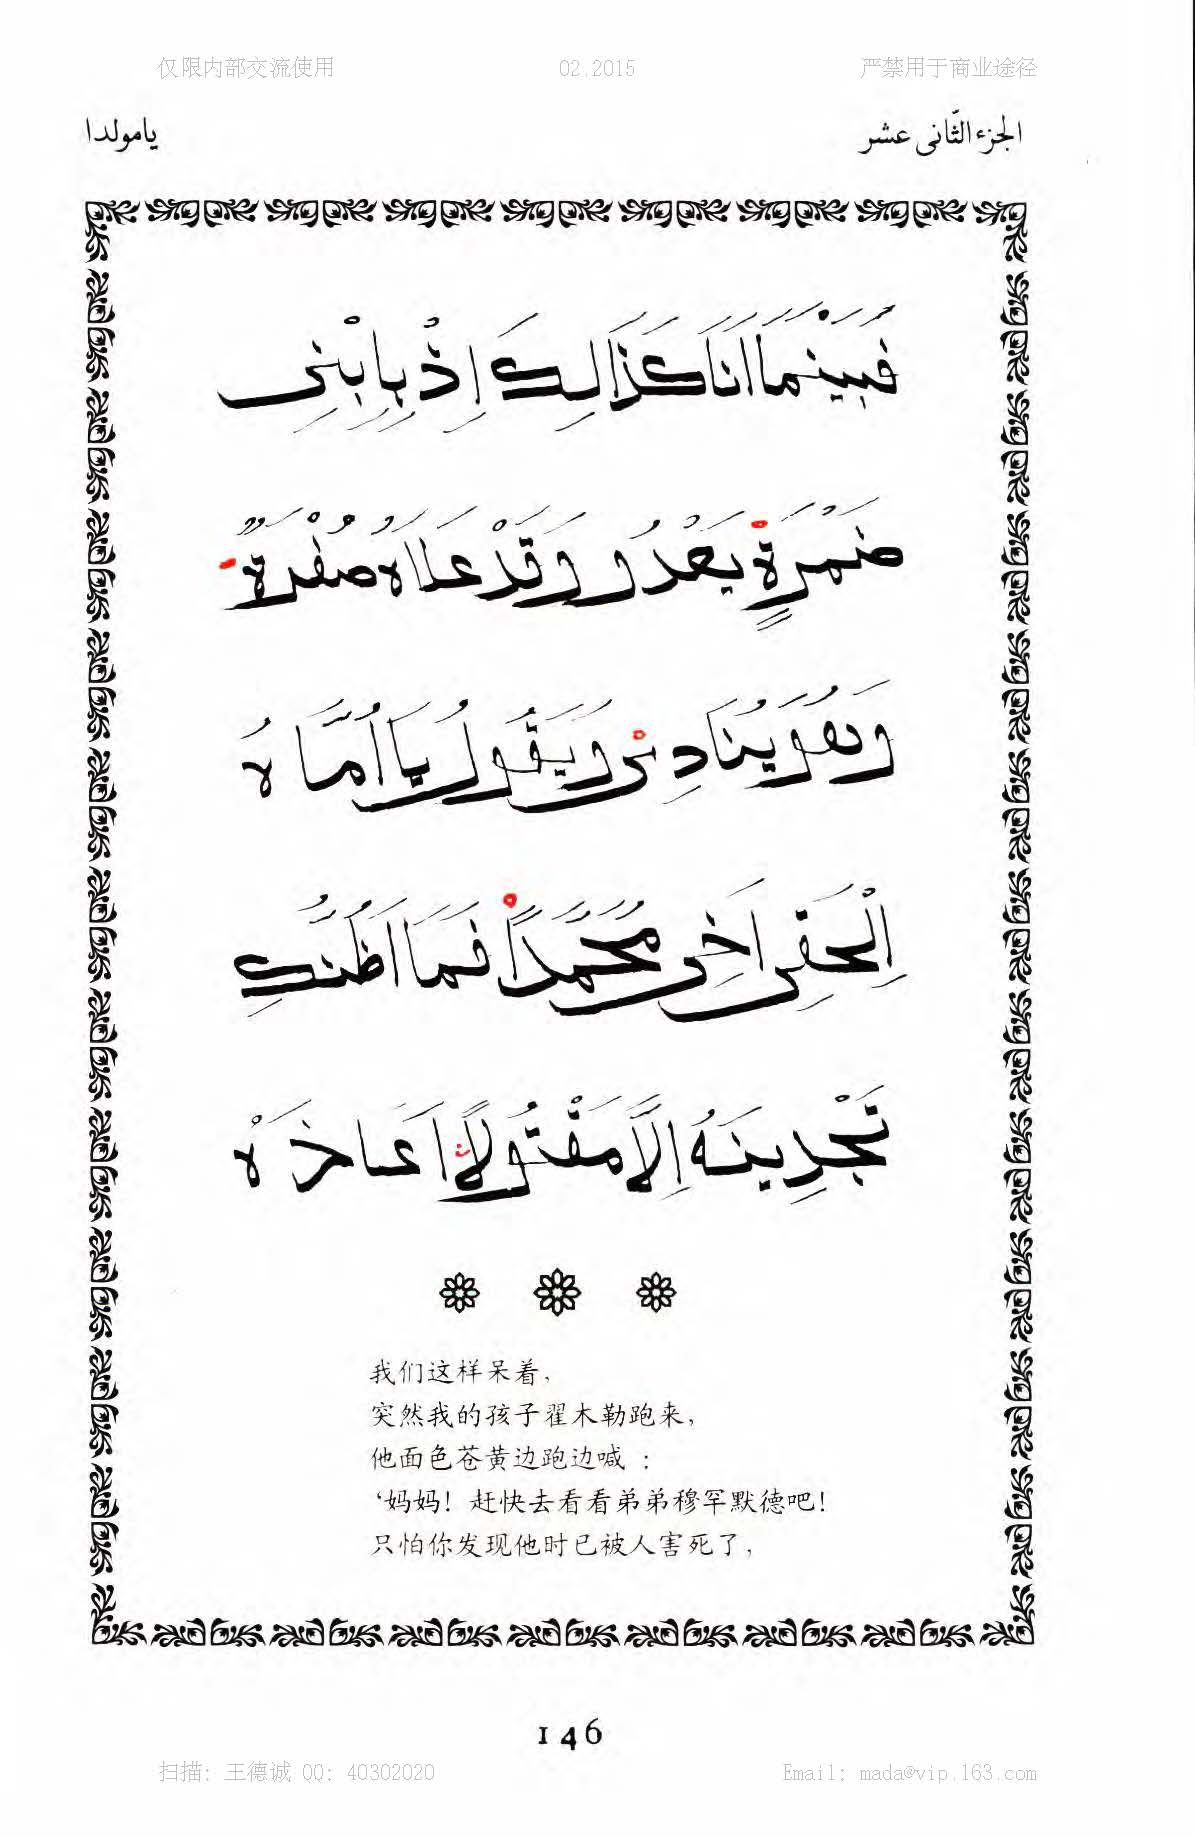 仅限内部交流使用 02.2015 严禁用于商业途径
الجزء الثّانى عشر يامولدا
فَبَيْنَمَا اَنَا كَذَالِكَ اِذْ بِابْنِى
ضَمْرَةٍ يَعْدُو وَقَدْ عَلَاهُ صُفْرَةٌ
وَهُوَ يُنَادِى وَيَقُولُ يَا اُمَّاهُ
اِلْحَقِى اَخِى مُحَمَّدًا فَمَا اَظُنُّكِ
تَجِدِينَهُ اِلَّا مَقْتُولًا اَعَاذَهْ
我们这样呆着，
突然我的孩子翟木勒跑来，
他面色苍黄边跑边喊：
‘妈妈！赶快去看看弟弟穆罕默德吧！
只怕你发现他时已被人害死了，
146
扫描：王德诚 QQ：40302020 Email：mada@vip.163.com